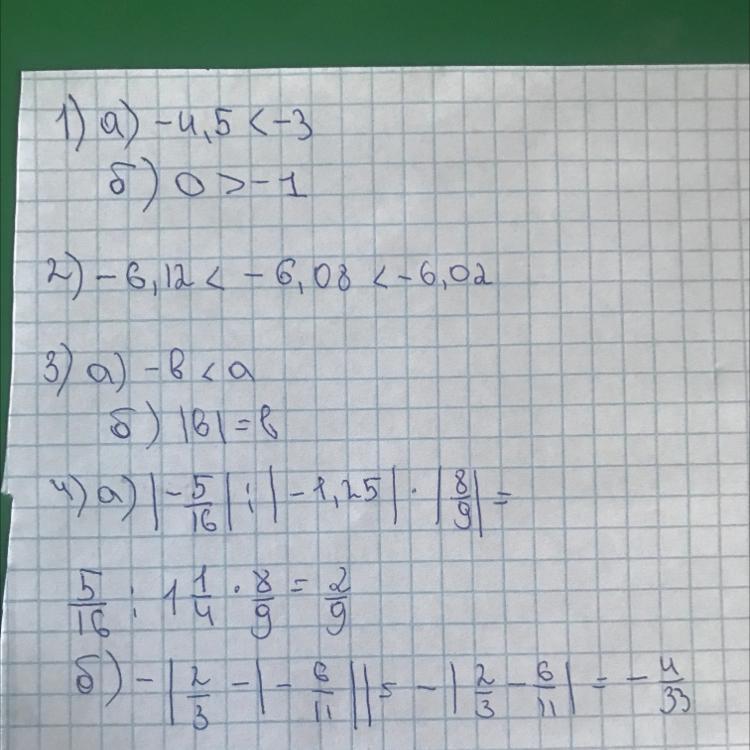 1) а) -4,5 < -3
б) 0 > -1
2) -6,12 < -6,08 < -6,02
3) а) -в < а
б) |в| = в
4) а) |-5/16| : |-1,25| · |8/9| =
5/16 : 1 1/4 · 8/9 = 2/9
б) -|2/3 - |-6/11|| = -|2/3 - 6/11| = -4/33